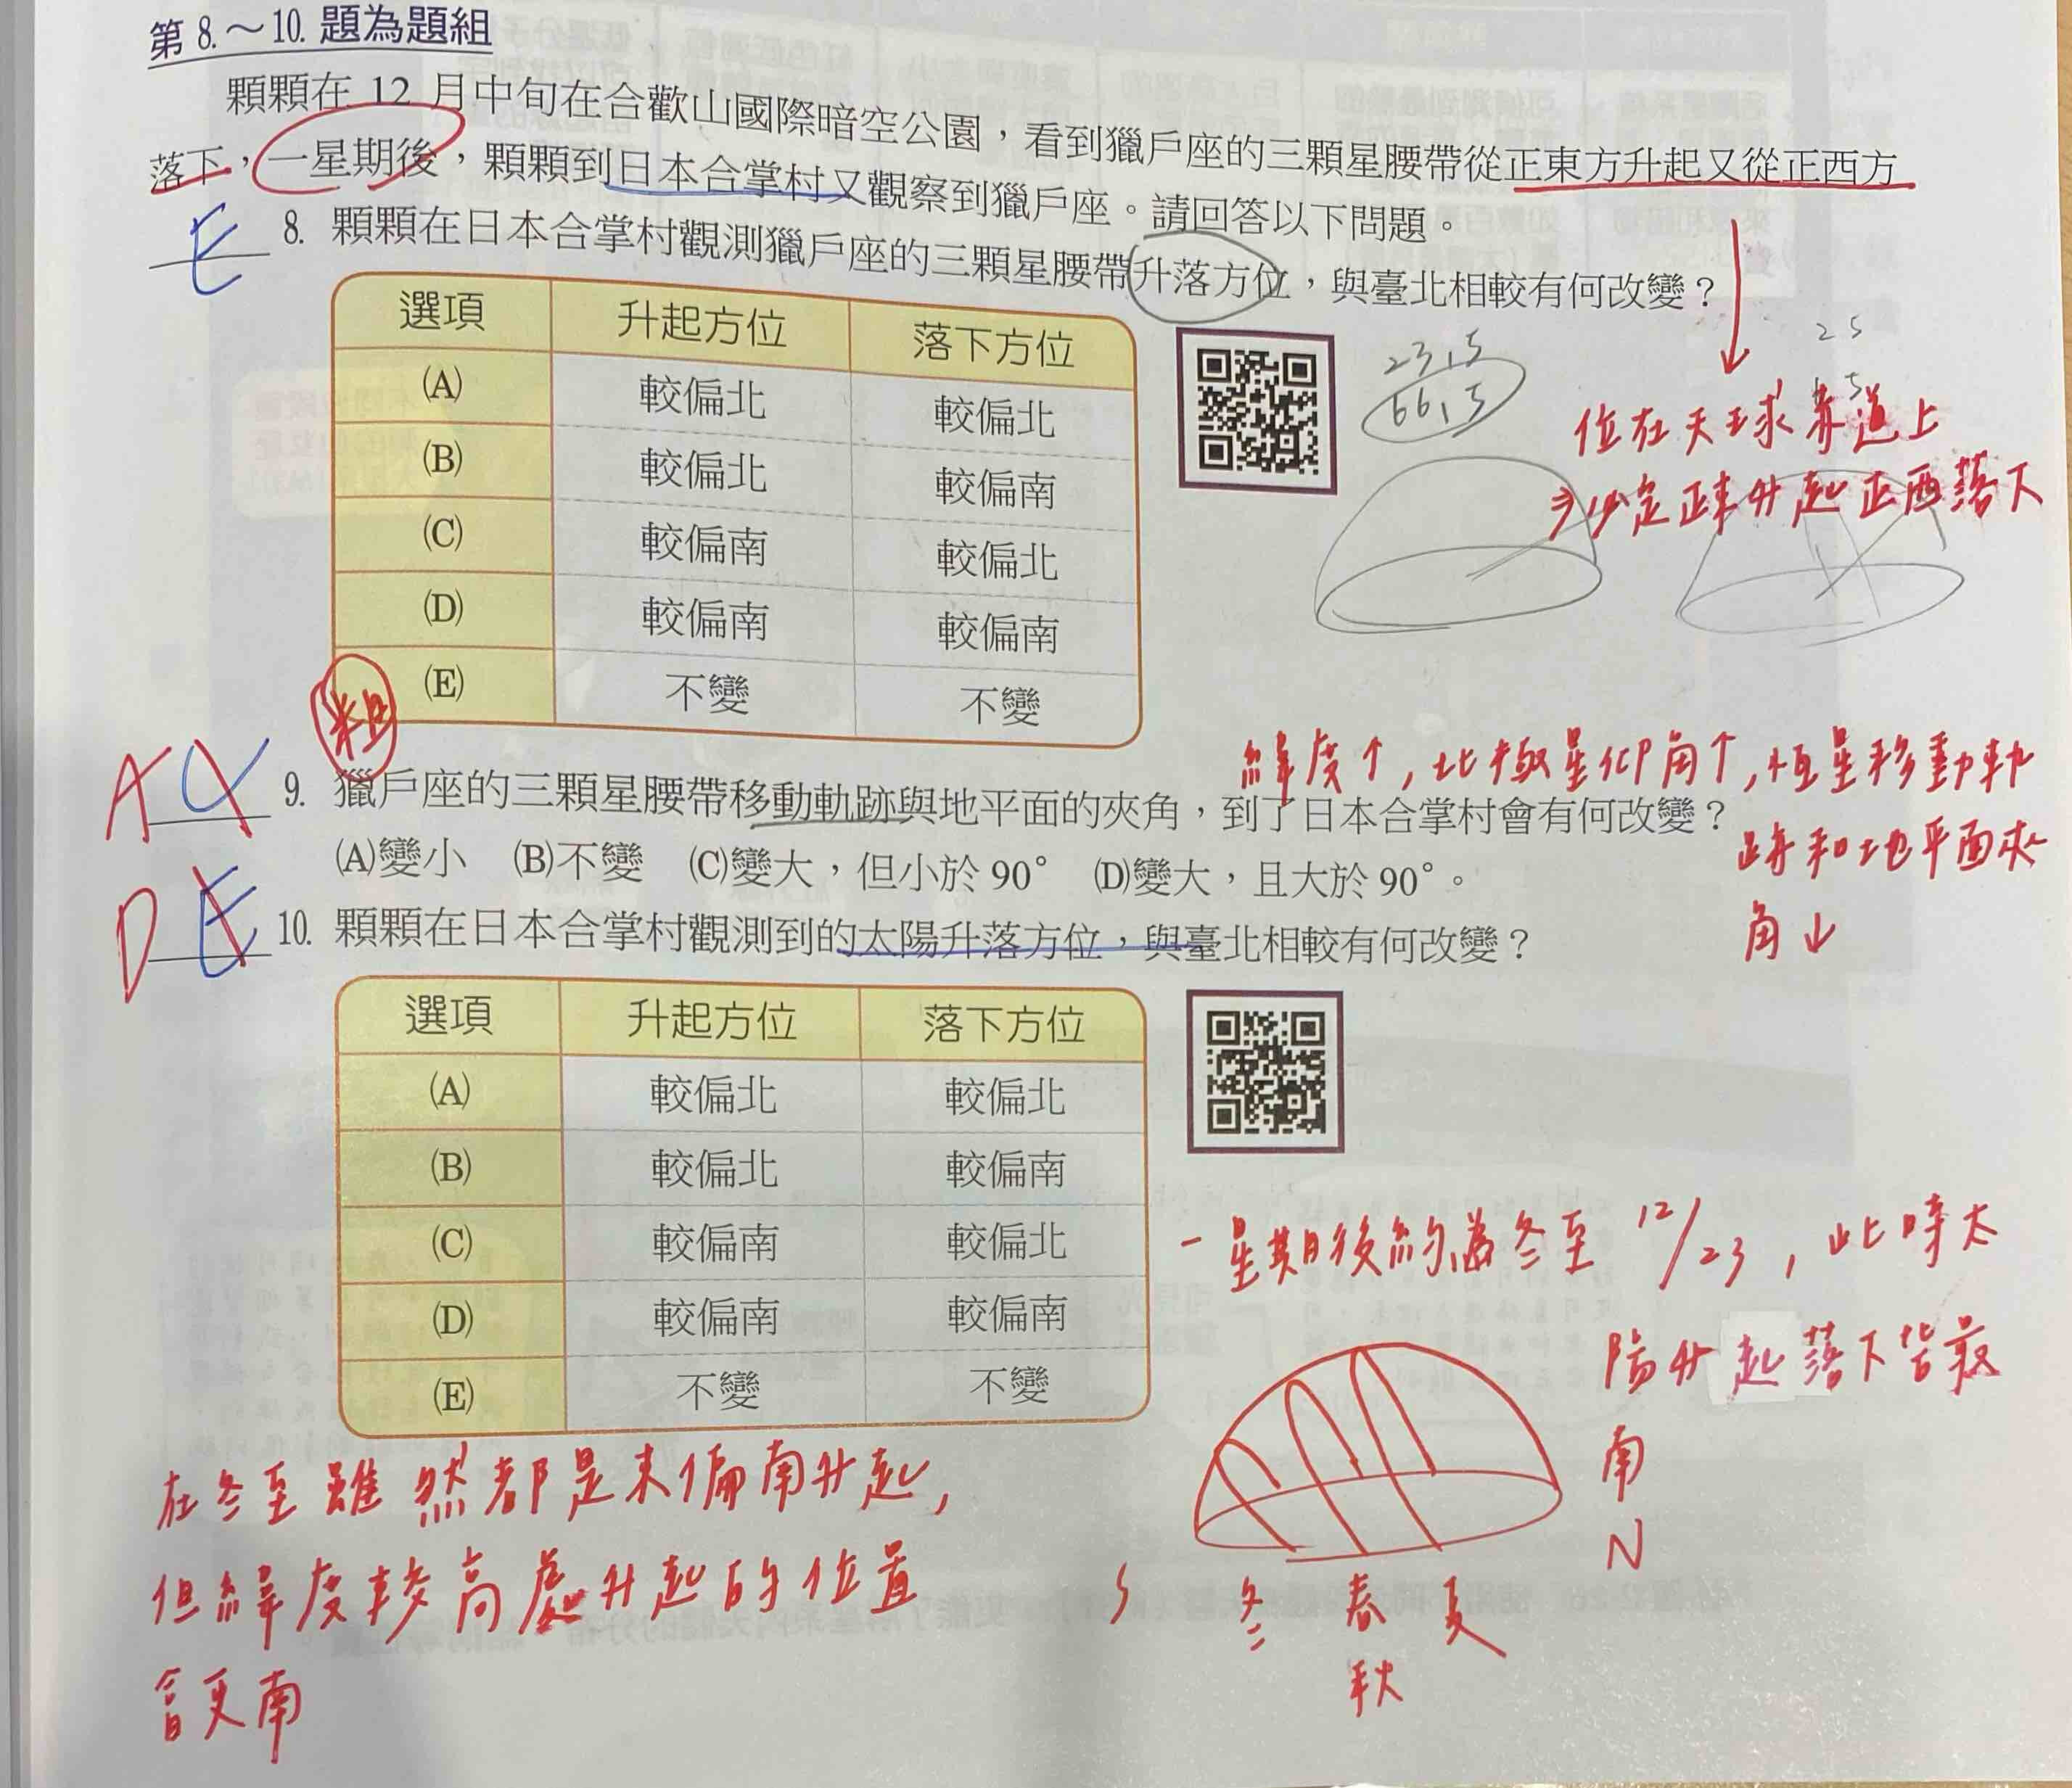 第8.～10.題為題組
顆顆在12月中旬在合歡山國際暗空公園，看到獵戶座的三顆星腰帶從正東方升起又從正西方
落下，一星期後，顆顆到日本合掌村又觀察到獵戶座。請回答以下問題。
E 8. 顆顆在日本合掌村觀測獵戶座的三顆星腰帶升落方位，與臺北相較有何改變？
選項 升起方位 落下方位
(A) 較偏北 較偏北
(B) 較偏北 較偏南
(C) 較偏南 較偏北
(D) 較偏南 較偏南
(E) 不變 不變
23.5
66.5
25
位在天球赤道上
必定正東升起正西落下
粗
緯度↑，北極星仰角↑，恆星移動軌
跡和地平面夾
角↓
A 9. 獵戶座的三顆星腰帶移動軌跡與地平面的夾角，到了日本合掌村會有何改變？
(A)變小 (B)不變 (C)變大，但小於90° (D)變大，且大於90°。
D E 10. 顆顆在日本合掌村觀測到的太陽升落方位，與臺北相較有何改變？
選項 升起方位 落下方位
(A) 較偏北 較偏北
(B) 較偏北 較偏南
(C) 較偏南 較偏北
(D) 較偏南 較偏南
(E) 不變 不變
一星期後約為冬至12/23，此時太
陽升起落下皆最
南
N
S
冬 春 夏
秋
在冬至雖然都是東偏南升起，
但緯度較高處升起的位置
會更南